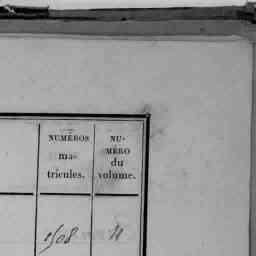 NUMÉROS
ma-
tricules.
NU-
MÉRO
du
volume.
1508 11